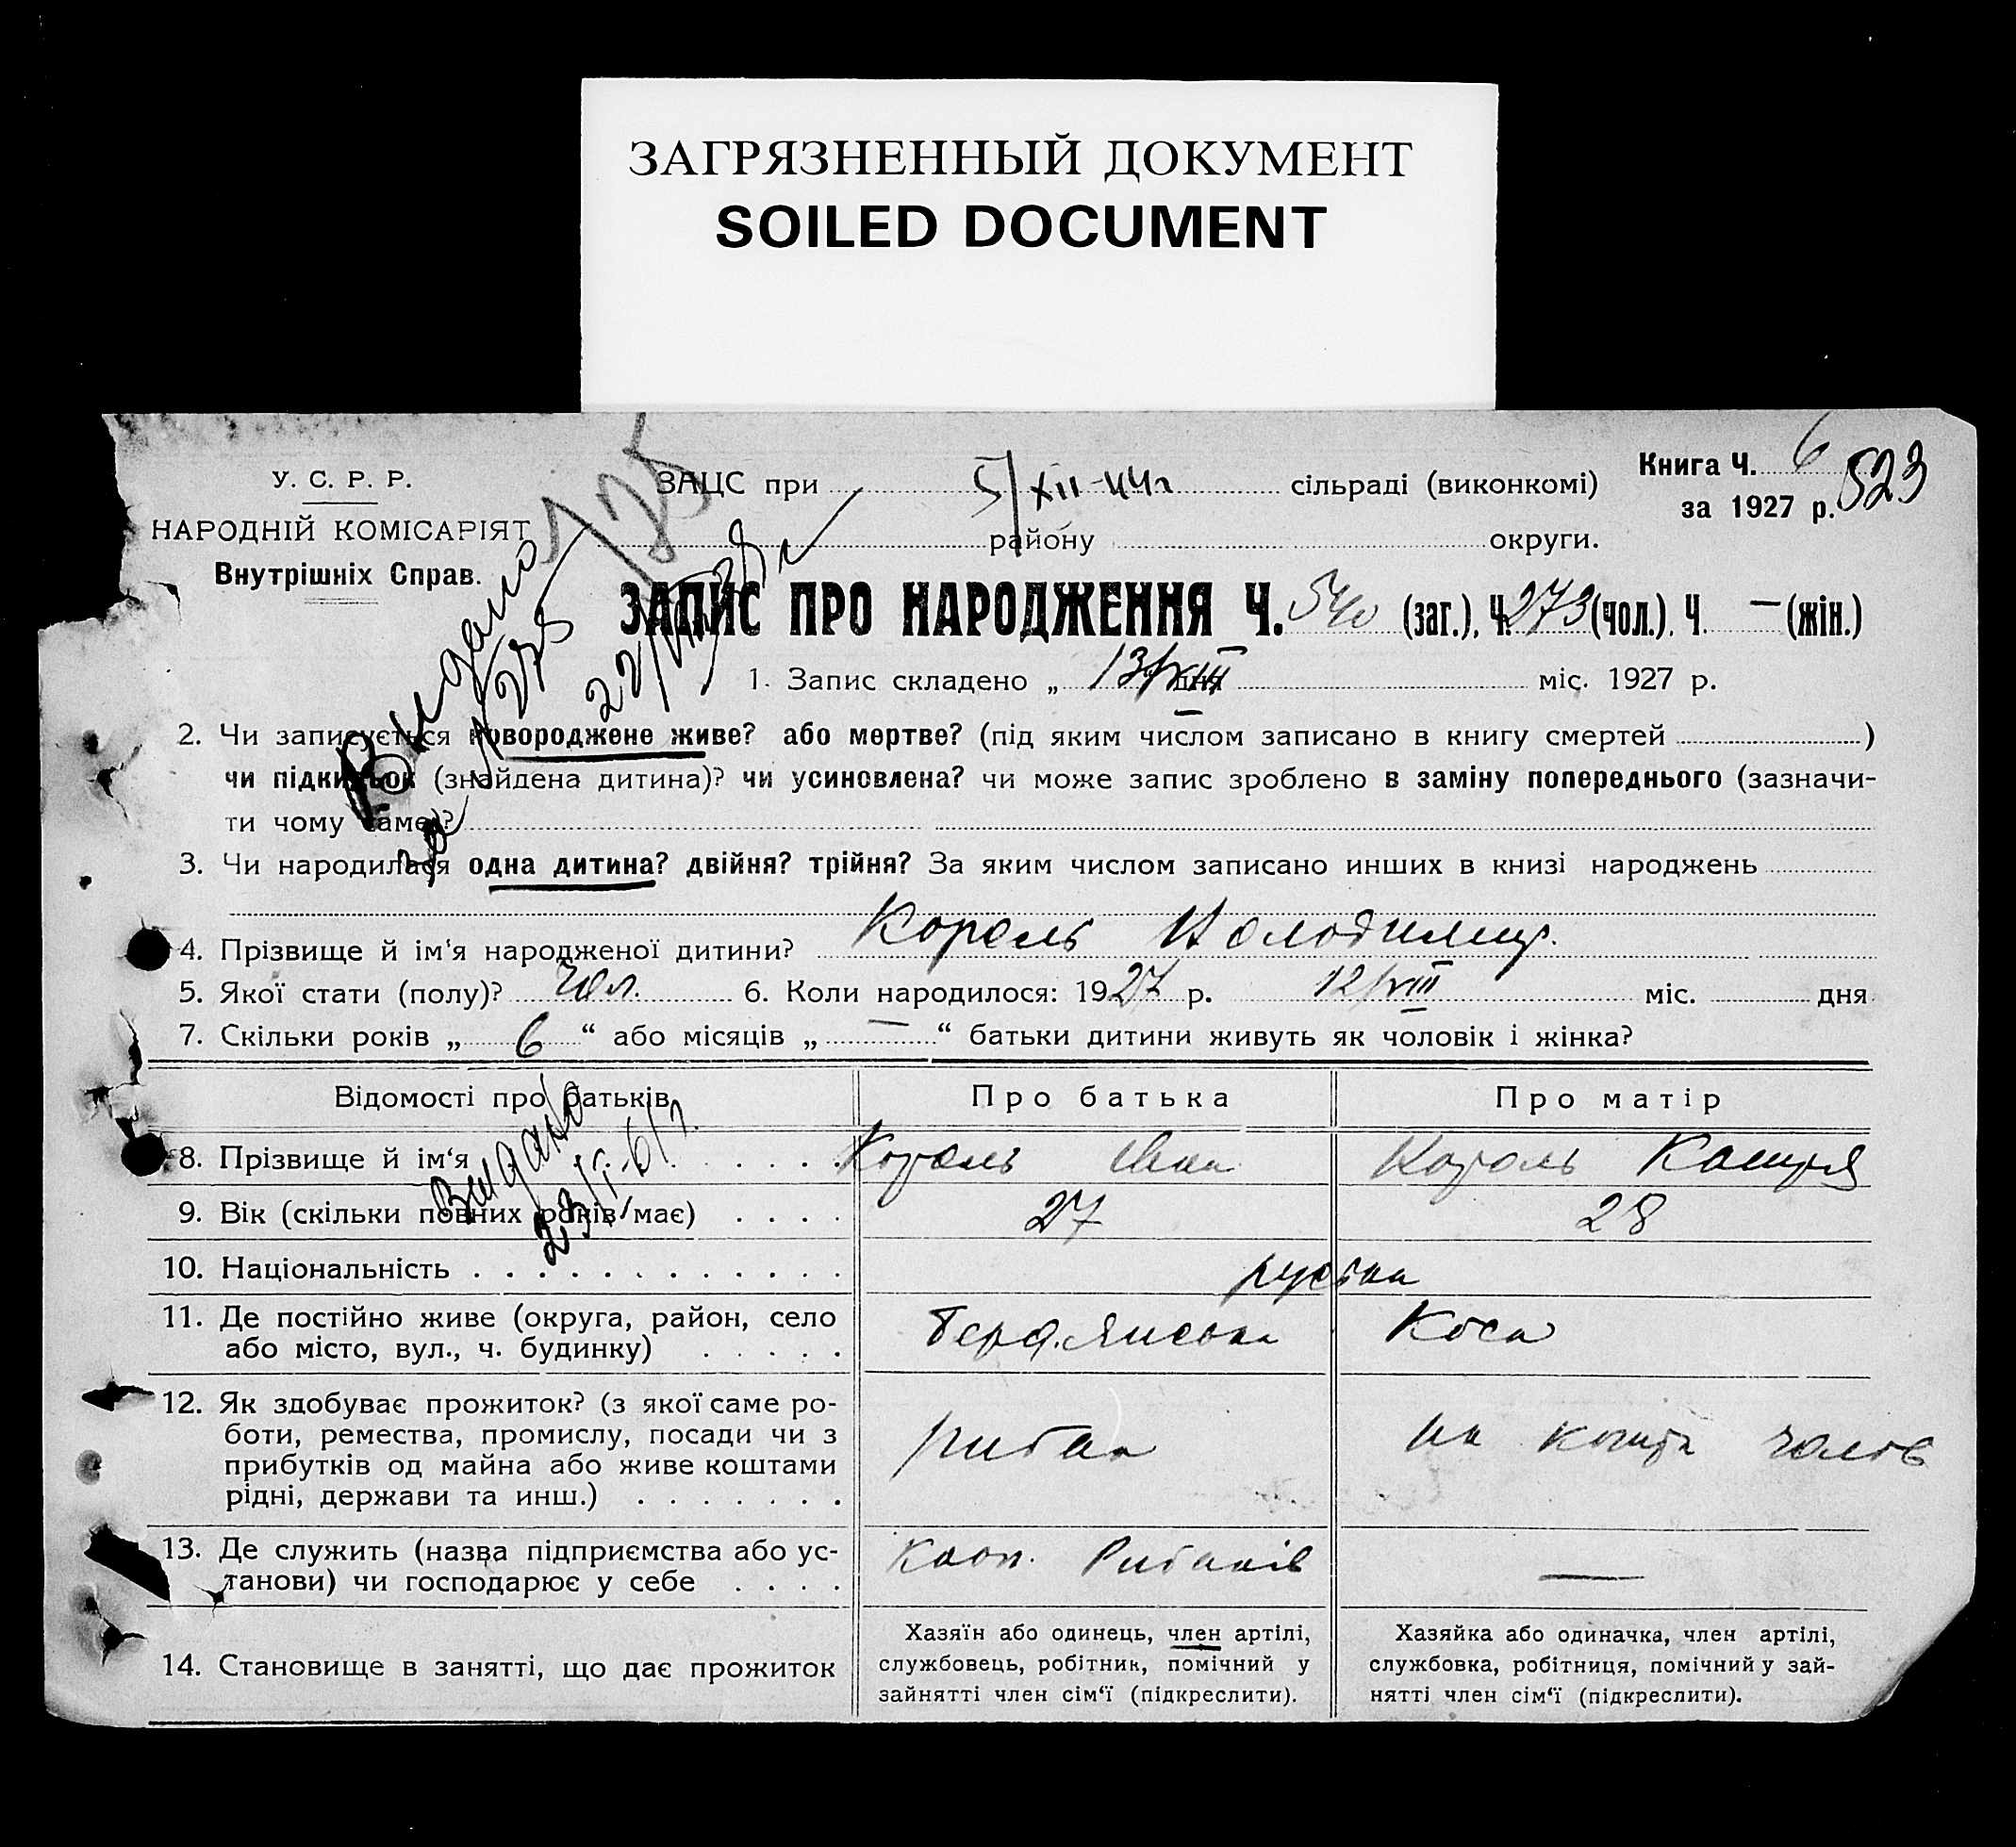 ЗАГРЯЗНЕННЫЙ ДОКУМЕНТ
SOILED DOCUMENT
У. С. Р. Р.
НАРОДНІЙ КОМІСАРІЯТ
Внутрішніх Справ.
ЗАЦС при 5/XII-44г сільраді (виконкомі)
району округи.
Книга Ч. 6
за 1927 р. 523
Видано
22/VIII
ЗАПИС ПРО НАРОДЖЕННЯ Ч. 540 (заг.), Ч. 273 (чол.). Ч. — (жін.)
1. Запис складено „ 13/VIII дня міс. 1927 р.
2. Чи записується новороджене живе? або мертве? (під яким числом записано в книгу смертей )
чи підкидьок (знайдена дитина)? чи усиновлена? чи може запис зроблено в заміну попереднього (зазначи-
ти чому саме)?
3. Чи народилася одна дитина? двійня? трійня? За яким числом записано инших в книзі народжень
4. Прізвище й ім'я народженої дитини? Король Володимир.
5. Якої стати (полу)? Чол. 6. Коли народилося: 1927 р. 12/VIII міс. дня
7. Скільки років „ 6 “ або місяців „ — “ батьки дитини живуть як чоловік і жінка?
Відомості про батьків Про батька Про матір
Видано
23/I-61г.
8. Прізвище й ім'я Король Іван Король Катря
9. Вік (скільки повних років має) 27 28
10. Національність
11. Де постійно живе (округа, район, село Бердянська Коса
або місто, вул., ч. будинку)
12. Як здобуває прожиток? (з якої саме ро-
боти, ремества, промислу, посади чи з рибак на кошти чолов
прибутків од майна або живе коштами
рідні, держави та инш.)
13. Де служить (назва підприємства або ус- Кооп. Рибаків —
танови) чи господарює у себе
14. Становище в занятті, що дає прожиток
Хазяїн або одинець, член артілі,
службовець, робітник, помічний у
зайнятті член сім‘ї (підкреслити).
Хазяйка або одиначка, член артілі,
службовка, робітниця, помічний у зай-
нятті член сім‘ї (підкреслити).